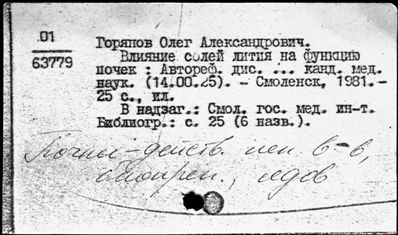 01
63779
Горянов Олег Александрович.
Влияние солей лития на функцию
почек : Автореф. дис. ... канд. мед.
наук. (14.00.25). - Смоленск, 1981.-
25 с., ил.
В надзаг.: Смол. гос. мед. ин-т.
Библиогр.: с. 25 (6 назв.).
Почки - действ. в-в,
ядов